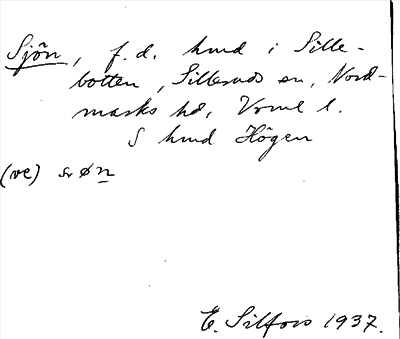 Sjön, f.d. hmd i Sille-
botten, Sillerud sn, Nord-
marks hd, Vrml l.
S hmd Högen
(ve) sɤøn
E. Silfors 1937.